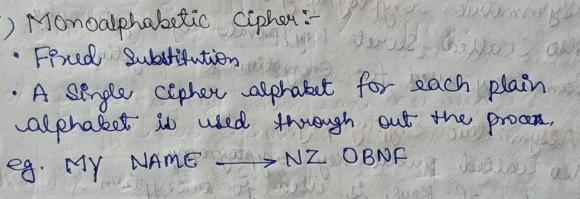 ) Monoalphabetic Cipher:-
• Fixed Substitution
• A Single cipher alphabet for each plain
alphabet is used through out the process.
eg. MY NAME → NZ OBNF